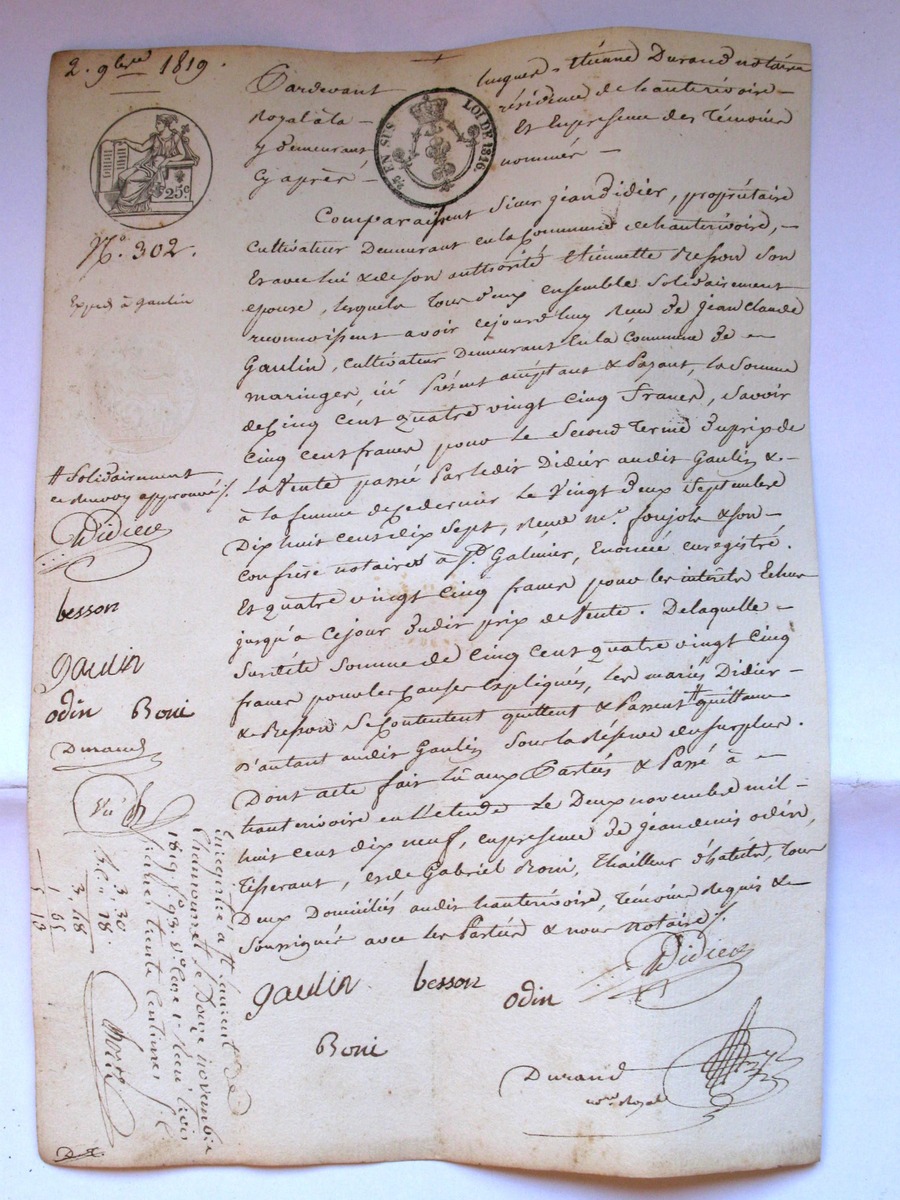 2. 9bre 1819.
Pardevant Jacques Etienne Durand notaire
Royal à la résidence de hauterivoire -
y demeurant et En presence des Témoins
Cy après - nommés -
25 EN SUS LOI DE 1816.
25c
No. 302.
Exped à gaulin
Comparaissent Sieur Jean Didier, propriétaire
Cultivateur Demeurant en la Commune de hauterivoire, -
Et avec lui & de son authorité Etiennette Besson Son
epouse, lesquels tous deux ensemble Solidairement
reconnoissent avoir cejourd'huy Reçu de Jean Claude
Gaulin, cultivateur Demeurant En la Commune de -
maringes, ici Présent acceptant & Payant, la Somme
de Cinq Cent quatre vingt Cinq francs, Savoir
Cinq cent francs pour le Second Terme du prix de
La Vente passée Par ledit Didier audit Gaulin & -
à la femme de ce dernier Le Vingt deux Septembre
Dix huit cent dix Sept, devant me. & Son
confrère notaires à St. Galmier, Enoncée enregistré.
Et quatre vingt Cinq francs pour les intérêts Echus
jusqu'à Cejour dudit prix de Vente. De laquelle -
Susdite Somme de Cinq Cent quatre vingt Cinq
francs pour les Causes Expliquées, les mariés Didier -
& Besson Se Contentent quittent & Passent # quittance
d'autant audit Gaulin Sous la Réserve du Surplus.
Dont acte fait lu aux Parties & Passé à -
hauterivoire en L'etude Le Deux novembre mil -
huit cent dix neuf, en presence de Jean denis odin,
Tisserant, & de Gabriel Boni, Thailleur d'habits, tous
Deux Domiciliés audit hauterivoire, Témoins requis &
Soussignés avec les Parties & nous notaire ./.
# Solidairement
ce renvoy approuvé ./.
Didier
besson
gaulin
odin Boni
Durand
gaulin besson odin Didier
Boni
Durand
nore Royal
Enregistré à St. Laurent de
Chamousset le Douze novembre
1819 fo 93 Vo Case 1re Reçu trois
francs trente centimes
3, 30
18
3, 48
1 65
5 13